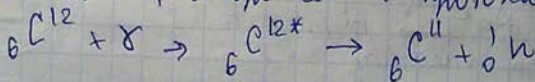 ₆C¹² + γ → ₆C¹²* → ₆C¹¹ + ¹₀n